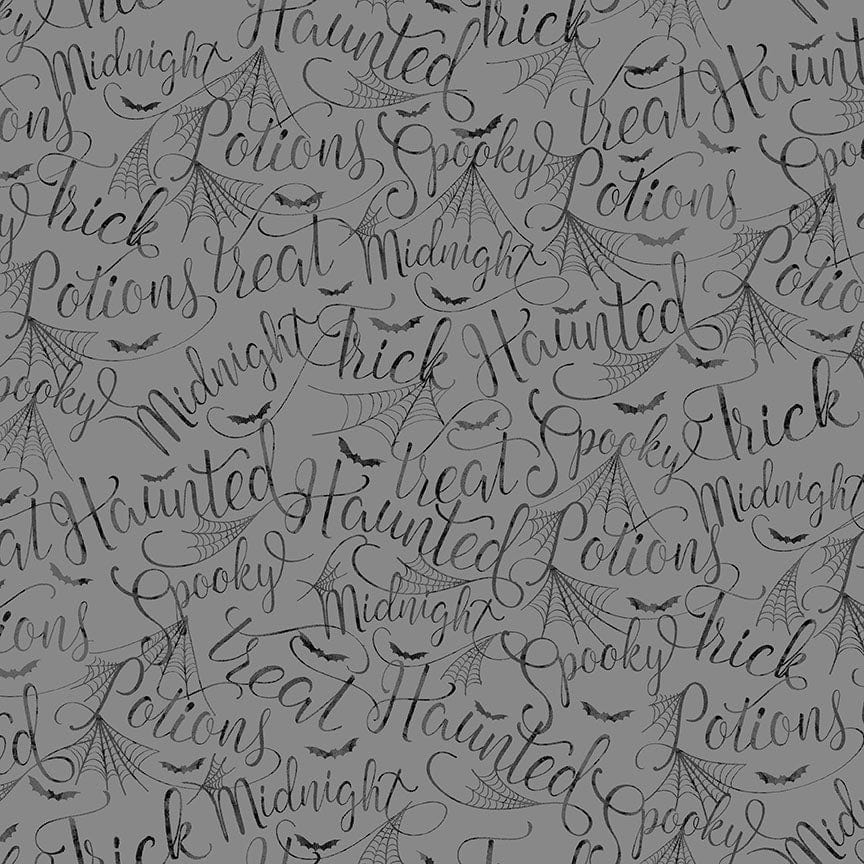 Spooky Trick Haunted Trick
Midnight treat Haunted
Potions Potions Spooky Potions Spooky
Trick treat Midnight Potions
Potions Midnight Trick Haunted
Spooky treat Spooky Trick
treat Haunted Haunted Potions Midnight
Potions Spooky Midnight Spooky Trick
Haunted Potions treat Haunted Potions
Trick Midnight Spooky